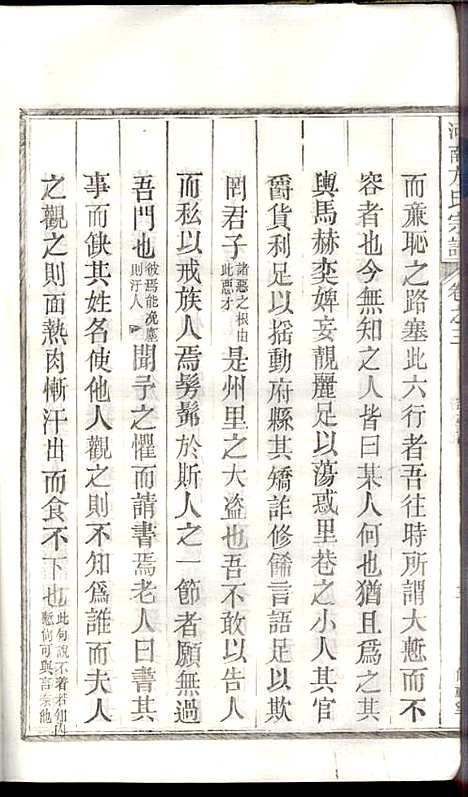 而亷恥之路塞此六行者吾往時所謂大慙而不
容者也今無知之人皆曰某人何也猶且爲之其
輿馬赫奕婢妾靚麗足以蕩惑里巷之小人其官
爵貨利足以揺動府縣其矯詐修餙言語足以欺
罔君子諸惡之根由此惡才是州里之大盗也吾不敢以告人
而私以戒族人焉髣髴於斯人之一節者願無過
吾門也彼焉能凂塵則汙人聞子之懼而請書焉老人曰書其
事而鈌其姓名使他人觀之則不知爲誰而夫人
之觀之則面熱肉慚汗出而食不下也此句說不着若知内慙尚可與言
河南方氏宗譜 卷之